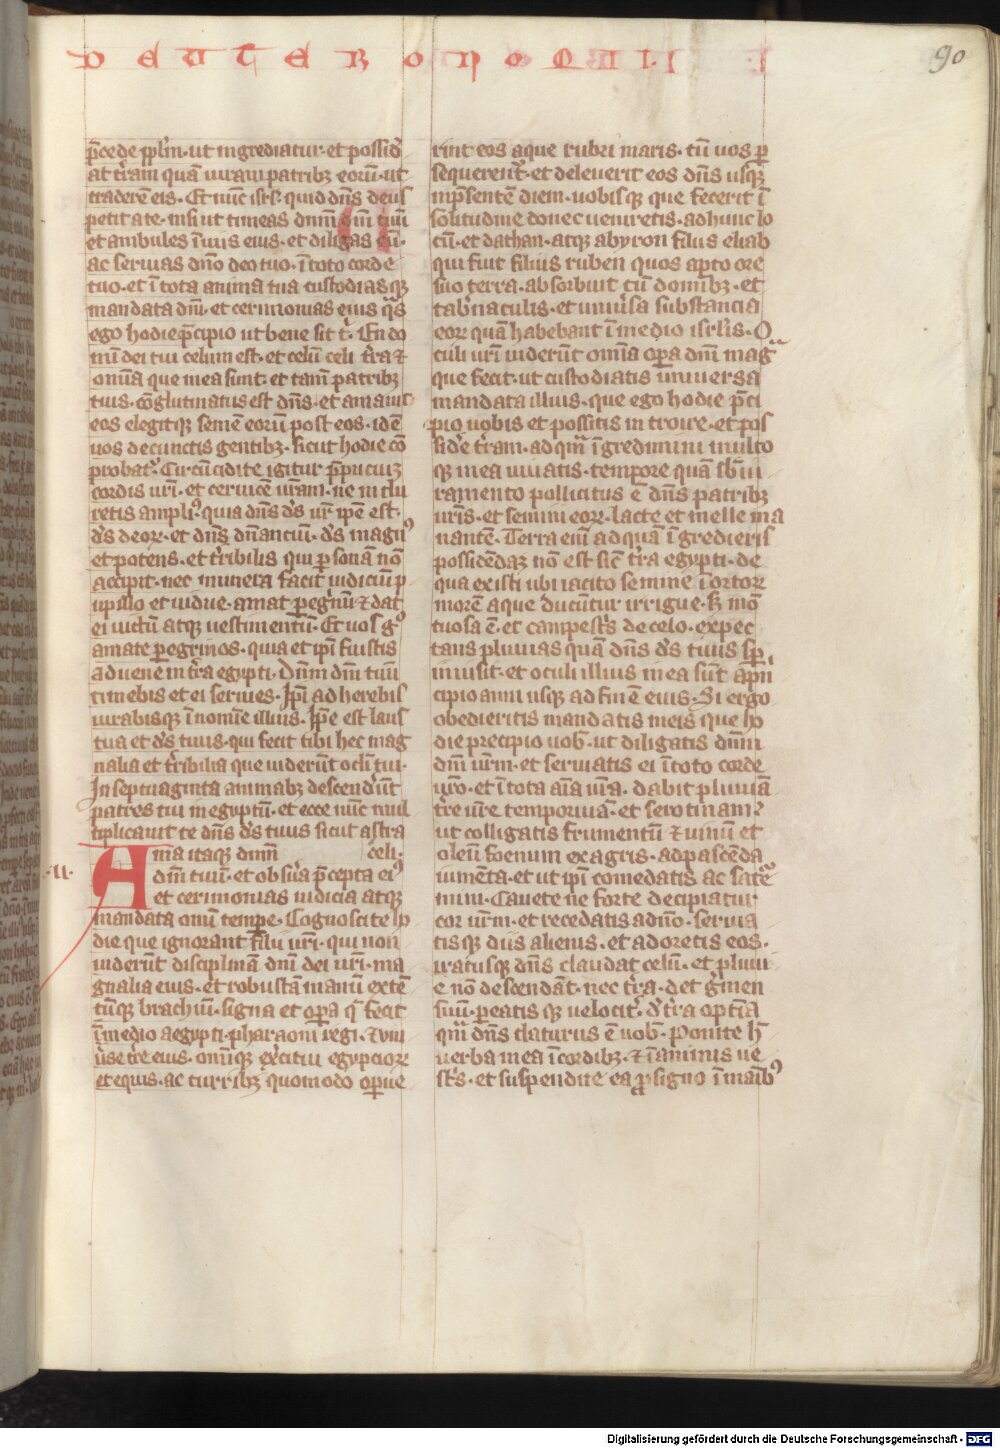 DEUTERONOMII
90
p̄cede pp̄lm · ut ingrediatur · et possid̄
at tr̄am quā iuraui patribꝫ eorū · ut
traderē eis · Et nūc isrl̄ · quid dn̄s deus
petit a te · nisi ut timeas dnm̄ dm̄ tuū
et ambules ī uiis eius · et diligas eū ·
ac seruias dn̄o deo tuo · ī toto corde
tuo · et ī tota anima tua custodiasqꝫ
mandata dn̄i · et cerimonias eius q̄s
ego hodie p̄cipio ut bene sit t̄ · En do
mī dei tui celum est · et celū celi t̄ra ⁊
omīa que in ea sunt · et tam̄ patribꝫ
tuis · cōglutinatus est dn̄s · et amauit
eos elegitqꝫ semē eorū post eos · id ē
uos de cunctis gentibꝫ · sicut hodie cō
probat᷑ · Circūcidite igitur p̄puciuꝫ
cordis ur̄i · et ceruicē ur̄am · ne indu
retis ampliꝰ · quia dn̄s d̄s ur̄ ip̄e est ·
d̄s deorꝝ · et dn̄s dn̄antiū · d̄s magnꝰ
et potens · et t̄ribilis qui p̲sonā nō
accipit · nec munera facit iudiciū p
upillo et uidue · amat p̲egrinū ⁊ dat
ei uictū atqꝫ uestimentū · Et uos gͦ
amate p̲egrinos · quia et ip̄i fuistis
aduene in t̄ra egypti · Dnm̄ dm̄ tuū
timebis et ei seruies · Ip̄i adherebis
iurabisqꝫ ī nomīe illius · Ip̄e est laus
tua et d̄s tuus · qui fecit tibi hec mag
nalia et t̄ribilia que uiderūt ocl̄i tui ·
In septuaginta animabꝫ descend̄ūt
patres tui in egyptū · et ecce nūc mul
tiplicauit te dn̄s d̄s tuus sicut astra
·xi· Ama itaqꝫ dnm̄ celi ·
dm̄ tuū · et obs̄ua p̄cepta eiꝰ
et cerimonias iudicia atqꝫ
mandata omī temp̲e · Cognoscite ho
die que ignorant filii ur̄i · qui non
uiderūt disciplinā dn̄i dei ur̄i · ma
gnalia eius · et robustā manū extē
tūqꝫ brachiū · signa et op̲a q̄ fecit
ī medio aegypti · pharaoni regi · ⁊ uni
ūse t̄re eius · omīqꝫ ex̄citui egyptiorꝝ
et equis · ac curribꝫ quomodo op̲ue
rint eos aque rubri maris · cū uos p̲
sequerent᷑ · et deleuerit eos dn̄s usqꝫ
inp̄sentē diem · uobisqꝫ que fecerit ī
solitudine donec ueniretis · ad hunc lo
cū · et dathan · atqꝫ abyron filiis eliab
qui fuit filius ruben quos ap̲to ore
suo terra · absorbuit cū domibꝫ · et
tab̄naculis · et uniūsa substancia
eorꝝ quā habebant ī medio isrl̄is · O
culi ur̄i uiderūt omīa op̲a dn̄i mag
que fecit · ut custodiatis uniuersa
mandata illius · que ego hodie p̄ci
pio uobis et possitis introire · et pos
sid̄e t̄ram · ad qm̄ īgredimini multo
qꝫ in ea uiuatis · tempore quā sb̄ iu
ramento pollicitus ē dn̄s patribꝫ
ur̄is · et semini eorꝝ · lacte et melle ma
nantē · Terra eni᷑ ad quā īgredieris
possidēdaꝫ non est sic̄ t̄ra egypti · de
qua existi ubi iacito semine ī ortorꝝ
morē aque ducūtur irrigue · sꝫ mō
tuosa ē · et campest̄s de celo · expec
tans pluuias quā dn̄s d̄s tuus sp̲
inuisit · et oculi illius in ea sūt a p̄n
cipio anni usqꝫ ad finē eius · Si ergo
obedieritis mandatis meis que ho
die precipio uob̄ · ut diligatis dnm̄
dm̄ ur̄m · et seruiatis ei ī toto corde
ur̄o · et ī tota aīa ur̄a · dabit pluuiā
t̄re ur̄e temporiuā · et serotinam ·
ut colligatis frumentū ⁊ uinū et
oleū foenum ex agris · ad pascēda
iumēta · et ut ip̄i comedatis ac sat̄e
mini · Cauete ne forte decipiatur
cor ur̄m · et recedatis a dn̄o · seruia
tisqꝫ diis alienis · et adoretis eos ·
iratusqꝫ dn̄s claudat celū · et pluui
e nō descendāt · nec t̄ra · det ḡmen
suū · p̲eatisqꝫ velocit̄ · d̄ t̄ra optīa
qm̄ dn̄s daturus ē uob̄ · Ponite h̄
uerba mea ī cordibꝫ · ⁊ ī animis ue
st̄s · et suspendite ea p̲ signo ī maībꝰ
Digitalisierung gefördert durch die Deutsche Forschungsgemeinschaft - DFG